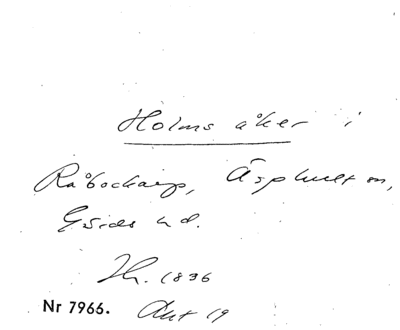 Holms åker i
Råbockarp, Äsphult sn,
Gärds hd.
Th. 1836
Nr 7966. Akt 19